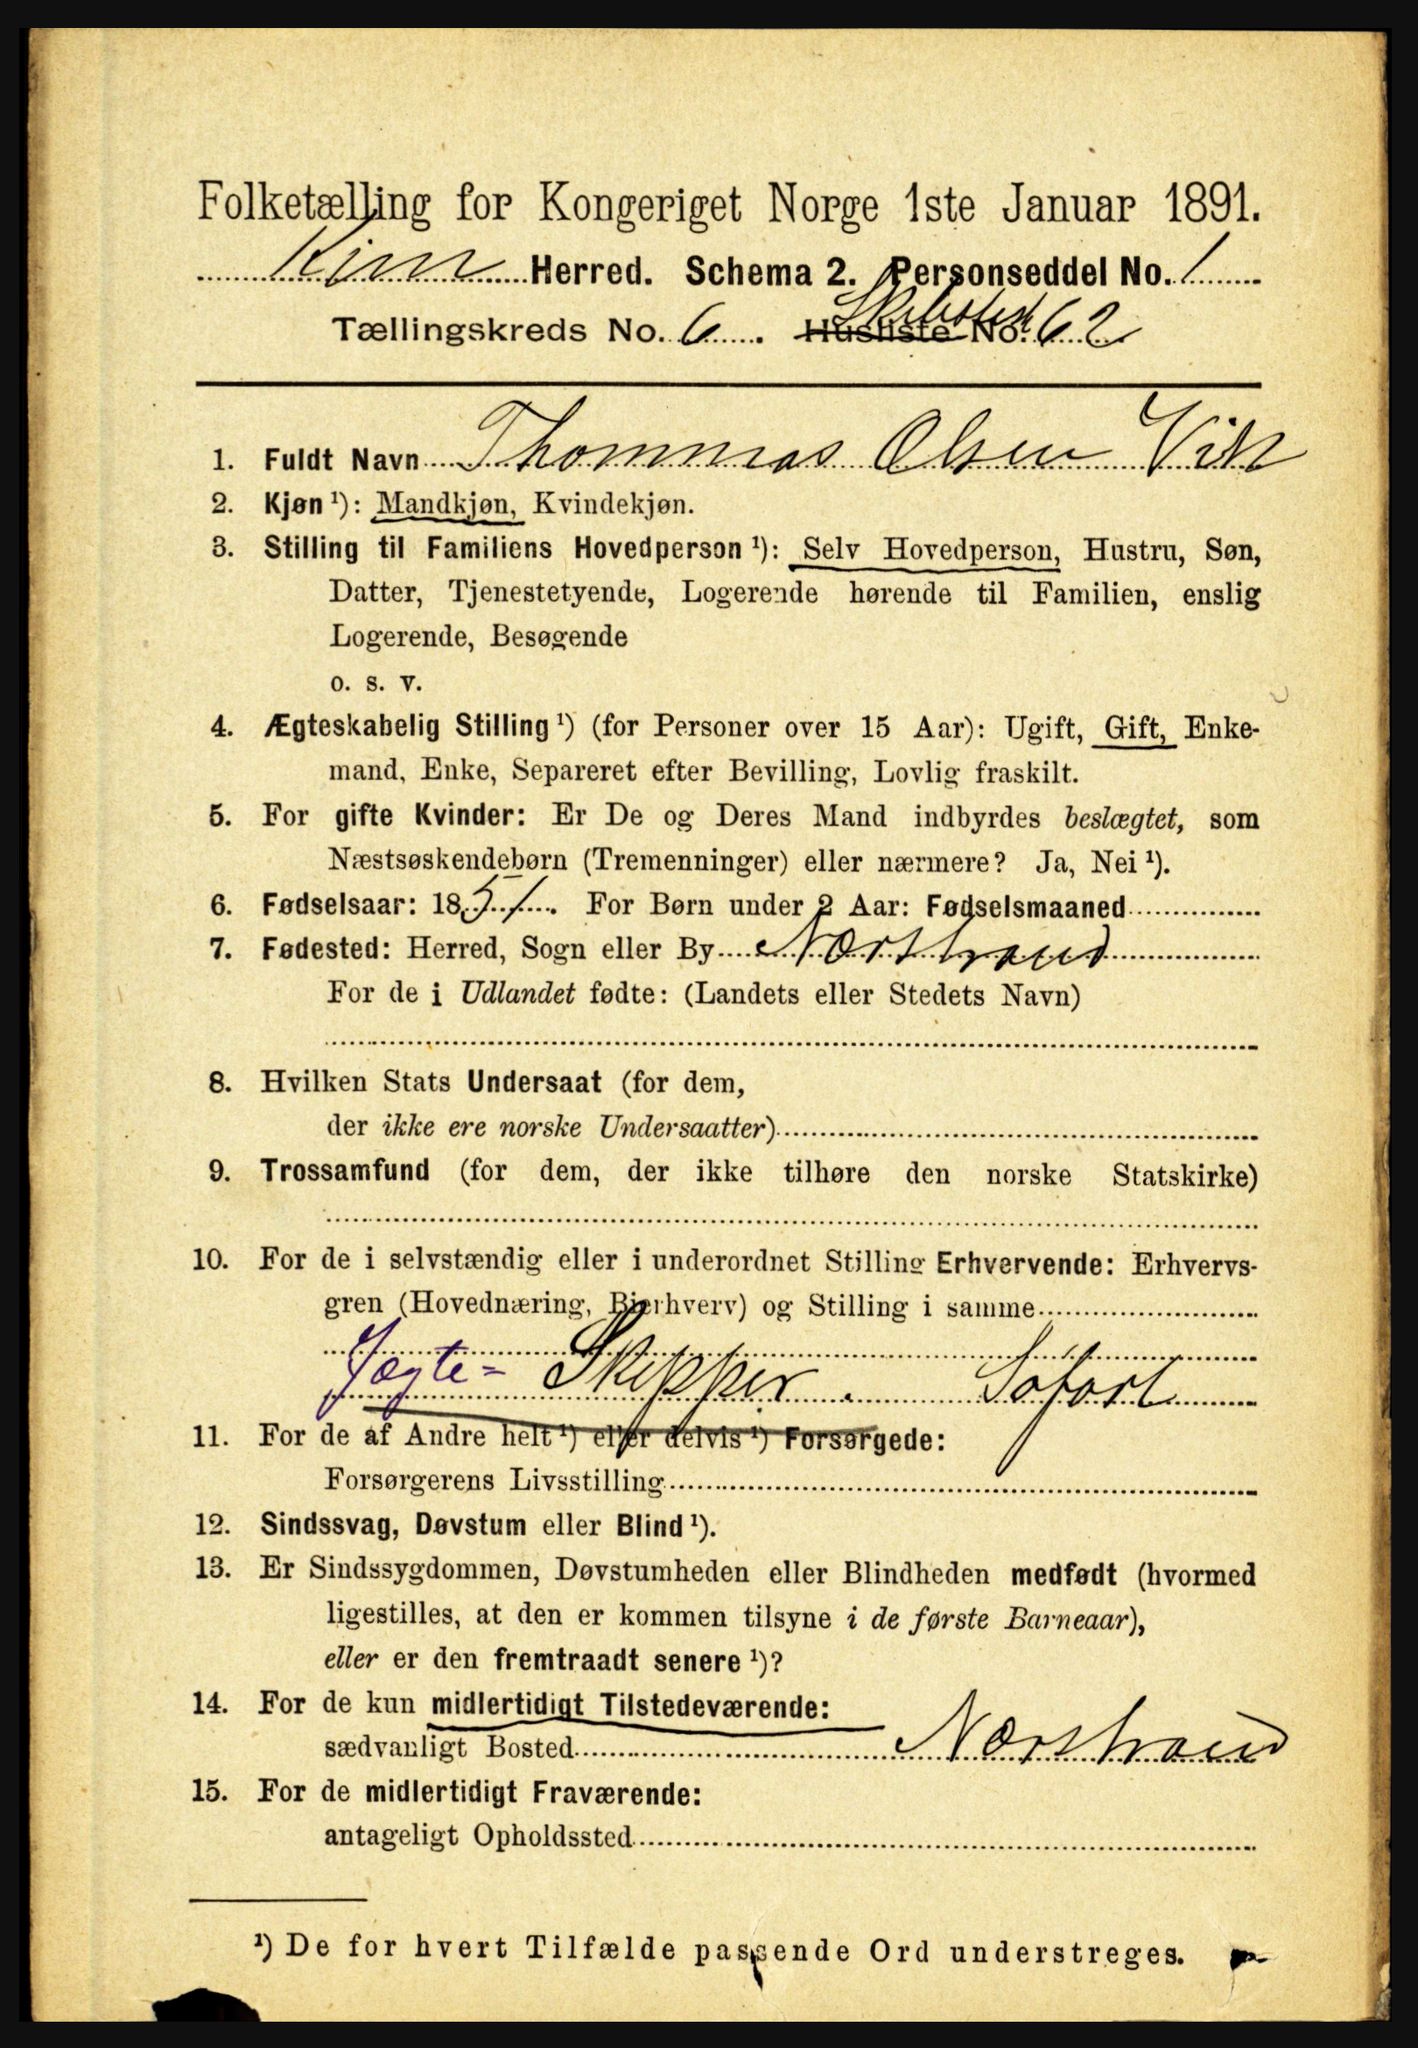 Folketælling for Kongeriget Norge 1ste Januar 1891.
Kinn Herred. Schema 2. Personseddel No. 1
Tællingskreds No. 6. Husliste Skibsliste No. 62
1. Fuldt Navn Thommas Olsen Vik
2. Kjøn ¹): Mandkjøn, Kvindekjøn.
3. Stilling til Familiens Hovedperson ¹): Selv Hovedperson, Hustru, Søn,
Datter, Tjenestetyende, Logerende hørende til Familien, enslig
Logerende, Besøgende
o. s. v.
4. Ægteskabelig Stilling ¹) (for Personer over 15 Aar): Ugift, Gift, Enke-
mand, Enke, Separeret efter Bevilling, Lovlig fraskilt.
5. For gifte Kvinder: Er De og Deres Mand indbyrdes beslægtet, som
Næstsøskendebørn (Tremenninger) eller nærmere? Ja, Nei ¹).
6. Fødselsaar: 1851. For Børn under 2 Aar: Fødselsmaaned
7. Fødested: Herred, Sogn eller By Nærstrand
For de i Udlandet fødte: (Landets eller Stedets Navn)
8. Hvilken Stats Undersaat (for dem,
der ikke ere norske Undersaatter)
9. Trossamfund (for dem, der ikke tilhøre den norske Statskirke)
10. For de i selvstændig eller i underordnet Stilling Erhvervende: Erhvervs-
gren (Hovednæring, Bierhverv) og Stilling i samme
Jægte- Skipper. Søfart
11. For de af Andre helt ¹) eller delvis ¹) Forsørgede:
Forsørgerens Livsstilling
12. Sindssvag, Døvstum eller Blind ¹).
13. Er Sindssygdommen, Døvstumheden eller Blindheden medfødt (hvormed
ligestilles, at den er kommen tilsyne i de første Barneaar),
eller er den fremtraadt senere ¹)?
14. For de kun midlertidigt Tilstedeværende:
sædvanligt Bosted Nærstrand
15. For de midlertidigt Fraværende:
antageligt Opholdssted
¹) De for hvert Tilfælde passende Ord understreges.